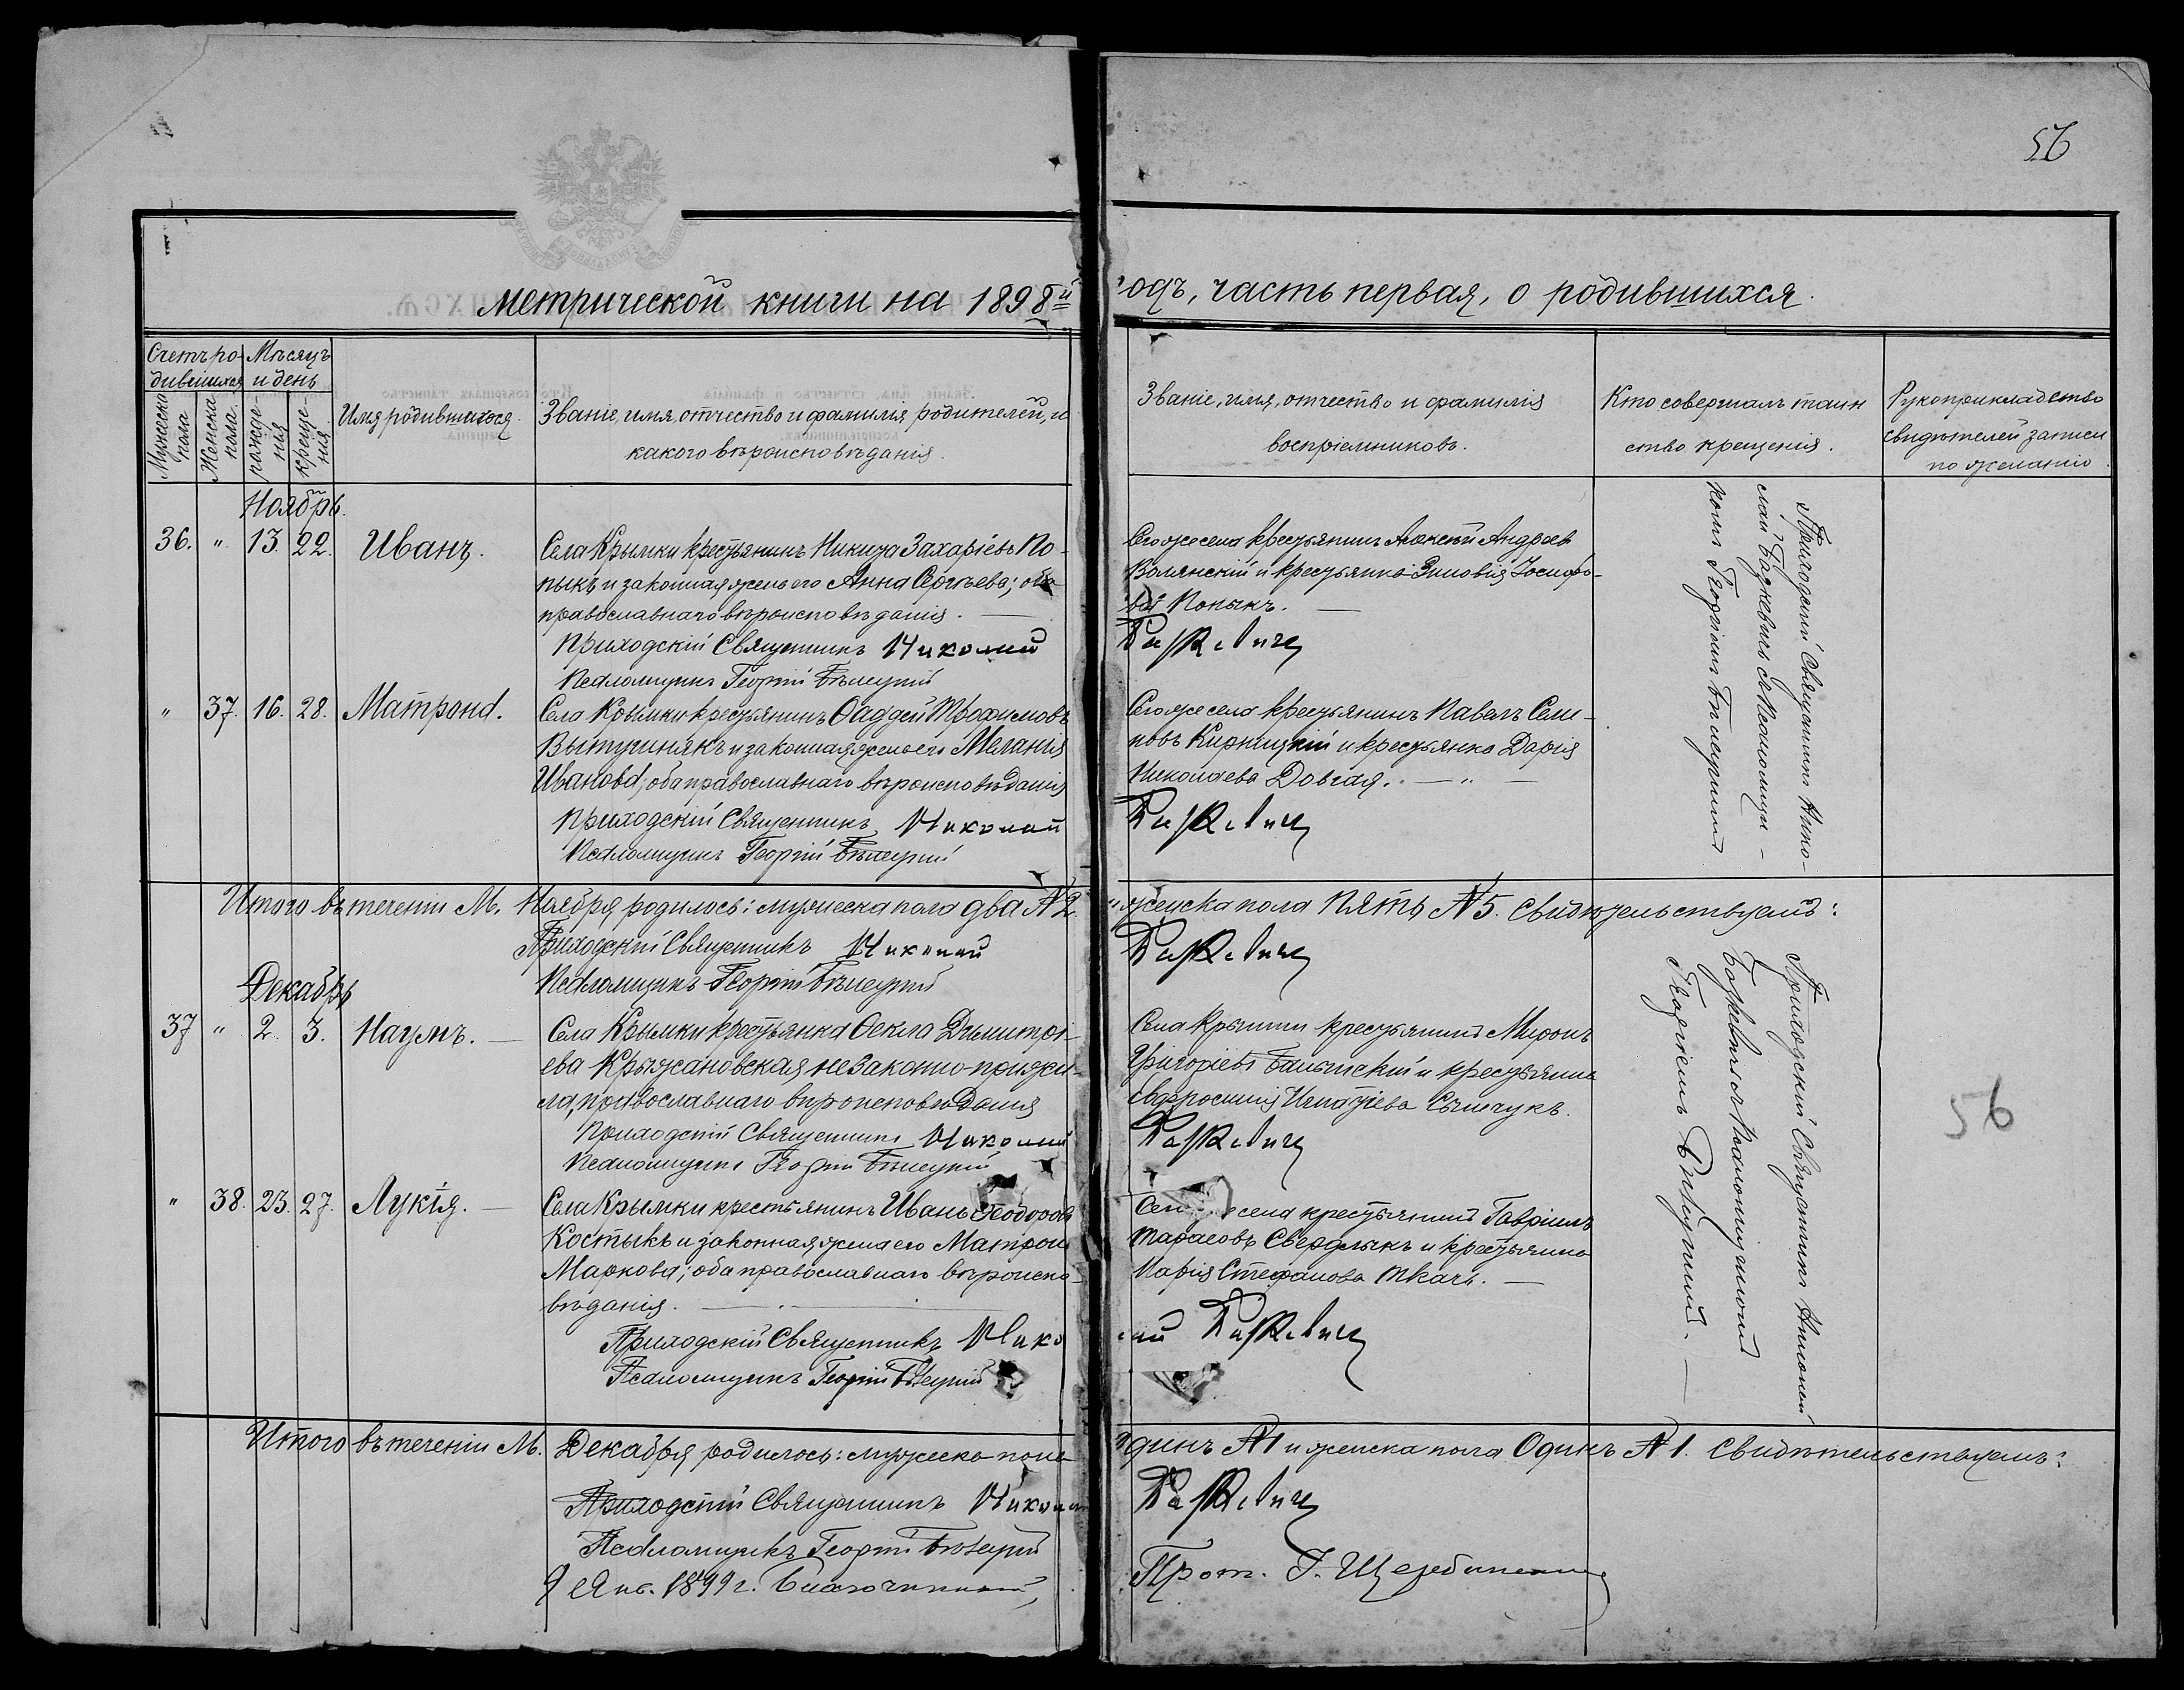 56
Метрической книги на 1898й
одъ, часть первая, о родившихся.
Счетъ ро-
дившихся
Мѣсяцъ
и день
Мужеска
пола
Женска
пола.
рожде-
нія
креще-
нія
Имя родившагося.
Званіе, имя, отчество и фамилія родителей, и
какого вѣроисповѣданія.
Званіе, имя, отчество и фамилія
воспріемниковъ.
Кто совершалъ таин
ство крещенія.
Рукоприкладство
свидѣтелей записи
по желанію.
Ноябрь.
36. " 13. 22. Иванъ.
Села Крымки крестьянинъ Никита Захаріевъ По-
пыкъ и законная жена его Анна Сергѣева; оба
православнаго вѣроисповѣданія.
Приходскій Священникъ Николай
Псаломщикъ Георгій Бѣлецкій
Сего же села крестьянинъ Андреев
Волянскій и крестьянка Зиновія Іосифо-
ва Попыкъ.
Бажевичъ
Приходскій Священникъ Нико-
лай Бажевичъ съ Псаломщи-
комъ Георгіемъ Бѣлецкимъ
" 37. 16. 28. Матрона.
Села Крымки крестьянинъ Ѳаддей Трофимовъ
Вытуинякъ и законная жена его Меланія
Иванова; оба православнаго вѣроисповѣданія
Приходскій Священникъ Николай
Псаломщикъ Георгій Бѣлецкій
Сего же села крестьянинъ Павелъ Семе-
новъ Кирницкій и крестьянка Дарія
Николаева Довгая.
Бажевичъ
Итого въ теченіи М. Ноября родилось: мужеска пола два № 2.
женска пола пять № 5. Свидѣтельствуемъ:
Приходскій Священникъ Николай
Бажевичъ
Псаломщикъ Георгій Бѣлецкій
Декабрь
37 " 2. 3. Наумъ.
Села Крымки крестьянка Ѳекла Димитрі-
ева Крыжановская незаконно прижи-
ла, православнаго вѣроисповѣданія
Приходскій Священникъ Николай
Псаломщикъ Георгій Бѣлецкій
Села Крымки крестьянинъ Миронъ
Григоріевъ и крестьянка
Евфросинія Игнатіева
Бажевичъ
Приходскій Священникъ Николай
Бажевичъ съ Псаломщикомъ
Георгіемъ Бѣлецкимъ.
56
" 38. 23. 27. Лукія.
Села Крымки крестьянинъ Иванъ Ѳеодоровъ
Костыкъ и законная жена его Матрона
Маркова; оба православнаго вѣроиспо-
вѣданія.
Приходскій Священникъ Нико
Псаломщикъ Георгій Бѣлецкій
села крестьянинъ Гавріилъ
Тарасовъ Свердлыкъ и крестьянка
Марія Стефанова Ткачъ.
лай Бажевичъ
Итого въ теченіи М. Декабря родилось: мужеска пола
одинъ № 1 и женска пола Одинъ № 1. Свидѣтельствуемъ:
Приходскій Священникъ Николай
Бажевичъ
Псаломщикъ Георгій Бѣлецкій
9 Янв. 1899 г. Благочинный,
Прот. І.